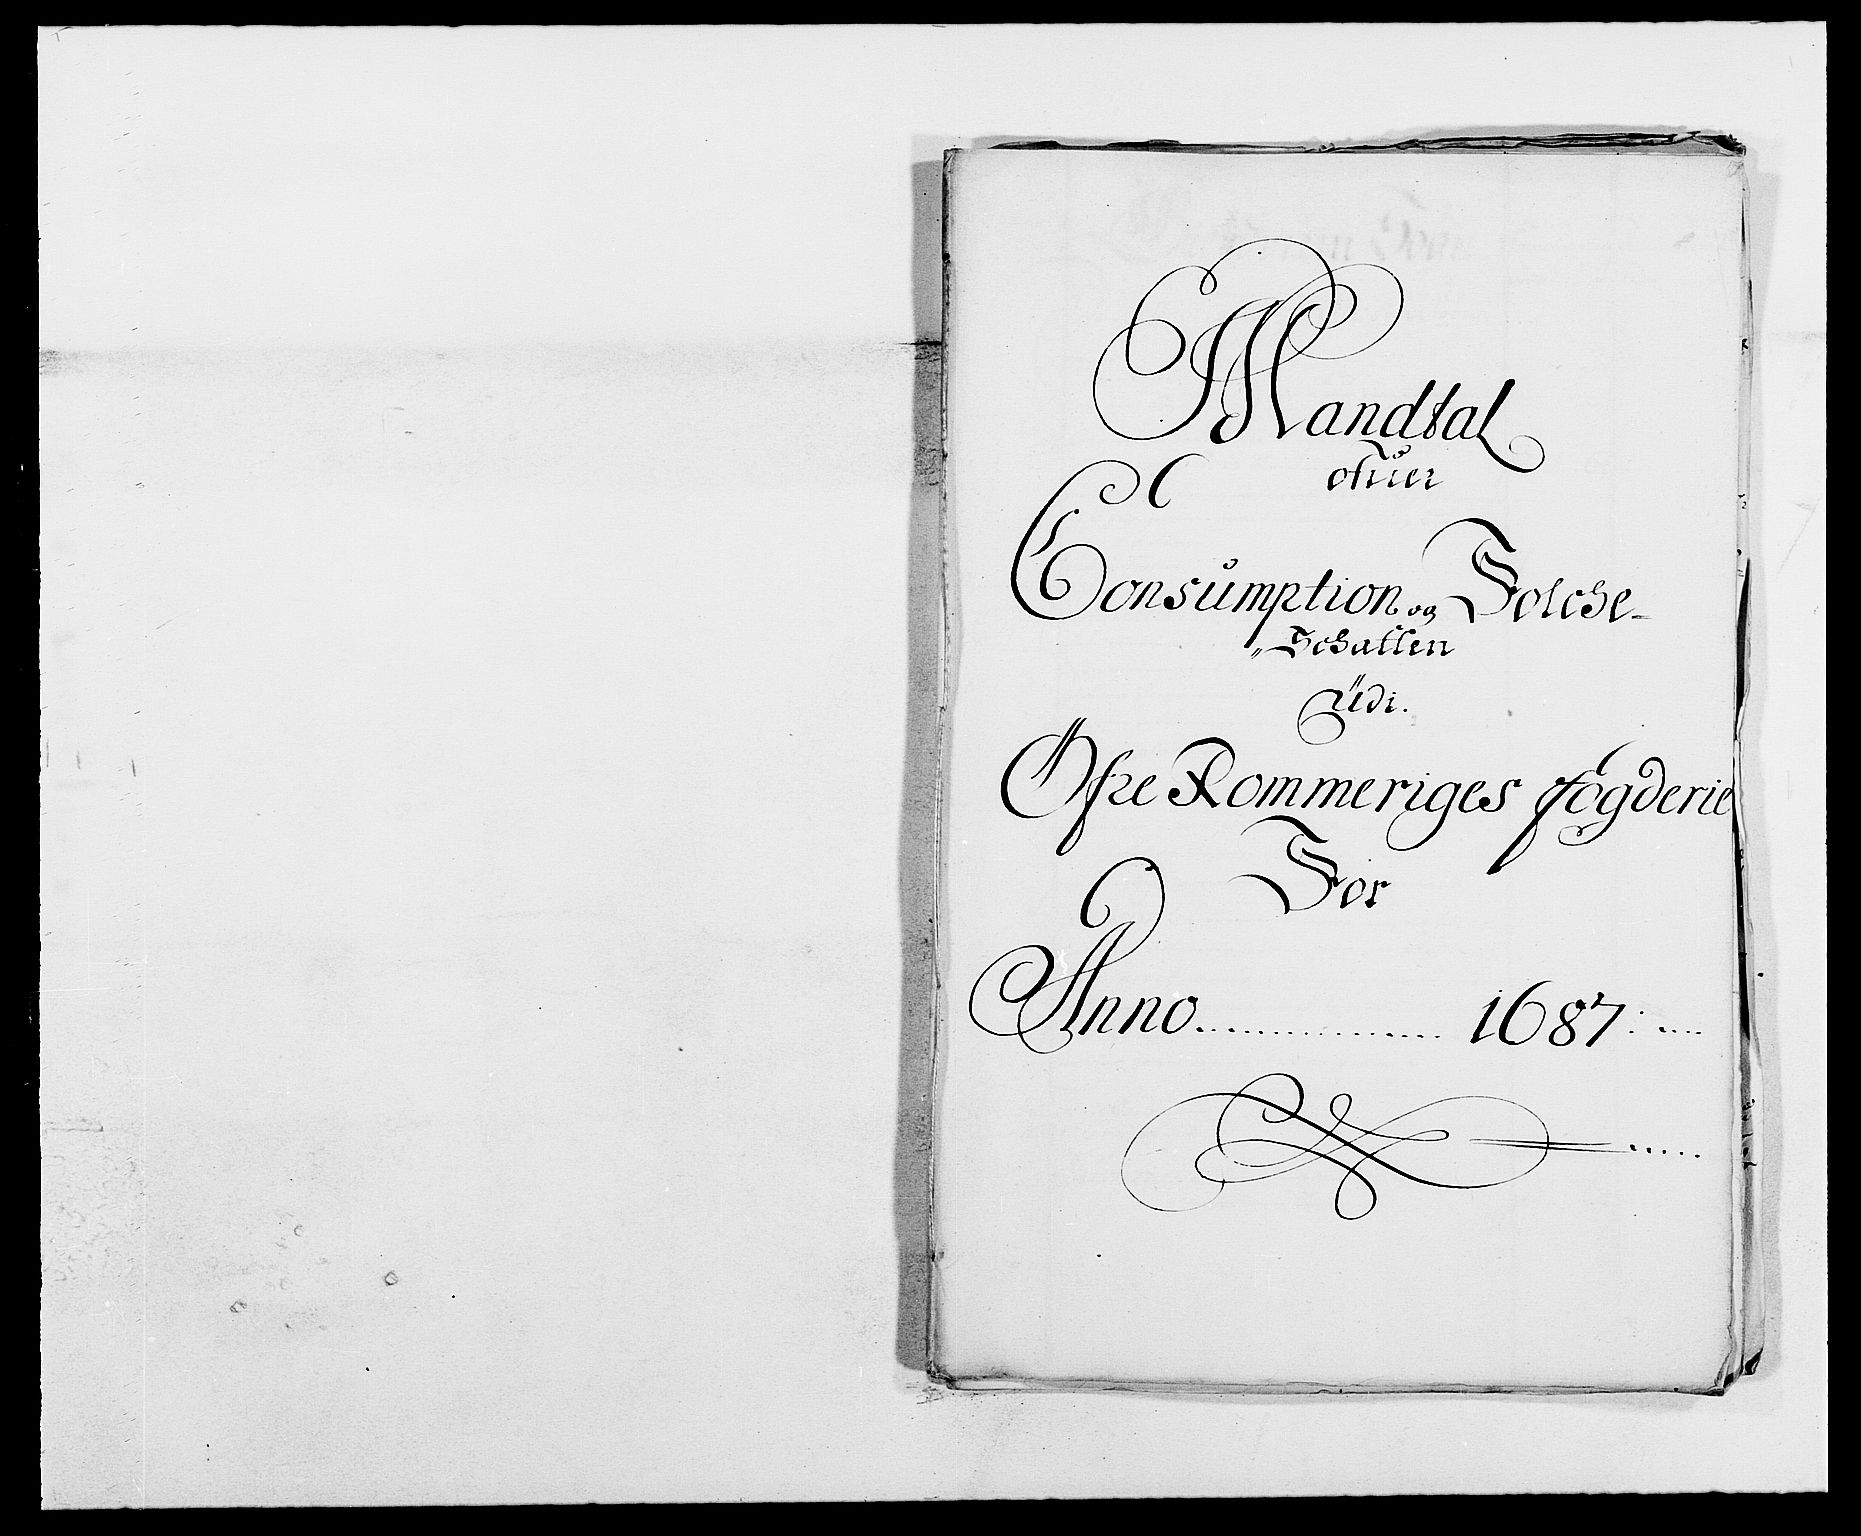 Mandtal
ofuer
Consumption og Folche-
Schatten
udi.
Øfre Rommeriges fogderie
For
Anno ............ 1687: ....